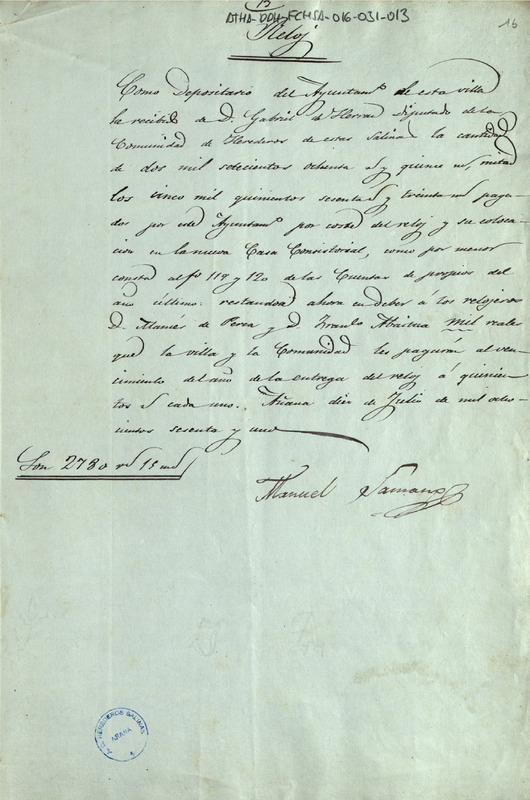 13
ATHA-DDH-FCHSA-016-031-013
16
Reloj
Como Depositario del Ayuntamto de esta villa
he recibido de D. Gabriel de Herran diputado de la
Comunidad de Herederos de estas Salinas la cantidad
de dos mil setecientos ochenta rs y quince ms, mitad
los cinco mil quinientos sesenta rs y treinta ms paga-
dos por este Ayuntamto por coste del reloj y su coloca-
cion en la nueva Casa Consistorial, como por menor
consta al fo 119 y 120 de las Cuentas de propios del
año último: restandose ahora en deber á los relojeros
D. Mamés de Perea y D. mil reales
que la villa y la Comunidad les pagarán al ven-
cimiento del año de la entrega del reloj á quinien-
tos rs cada uno. Añana diez de Julio de mil ocho-
cientos sesenta y uno
Son 2780 rs 15 ms
Manuel Samano
HEREDEROS SALINAS
AÑANA